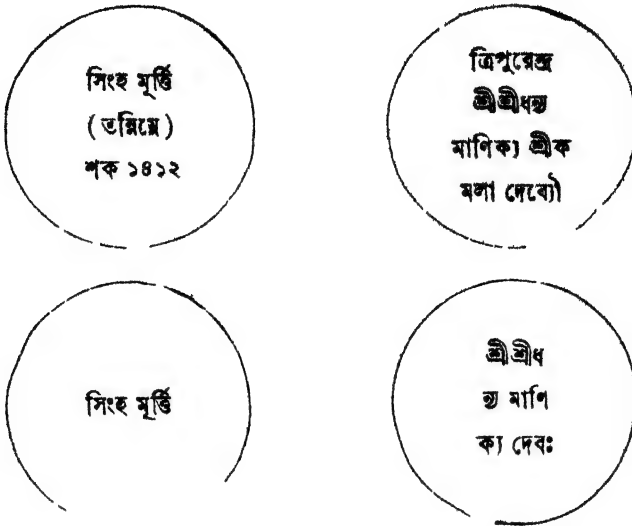 সিংহ মূর্ত্তি
(তন্নিম্নে)
শক ১৪১২
ত্রিপুরেন্দ্র
শ্রীশ্রীধন্য
মাণিক্য শ্রীক
মলা দেব্যৌ
সিংহ মূর্ত্তি
শ্রীশ্রীধ
ন্য মাণি
ক্য দেবঃ